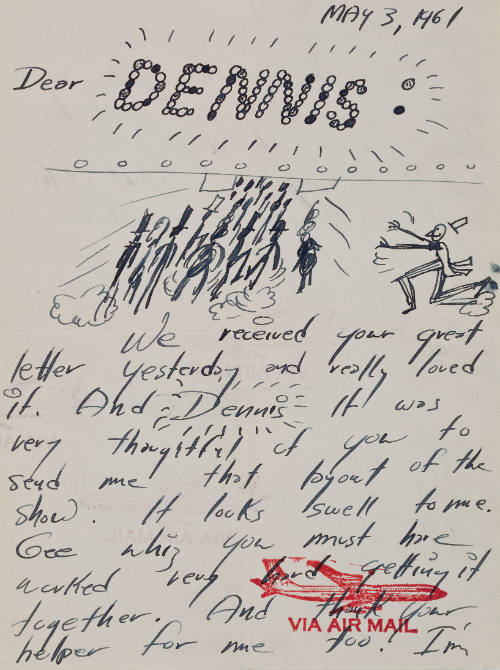 MAY 3, 1961
Dear DENNIS:
We received your great
letter yesterday and really loved
it. And Dennis it was
very thoughtful of you to
send me that layout of the
show. It looks swell to me.
Gee whiz you must have
worked very hard getting it
together. And thank your
helper for me too! I'm
VIA AIR MAIL
VIA AIR MAIL